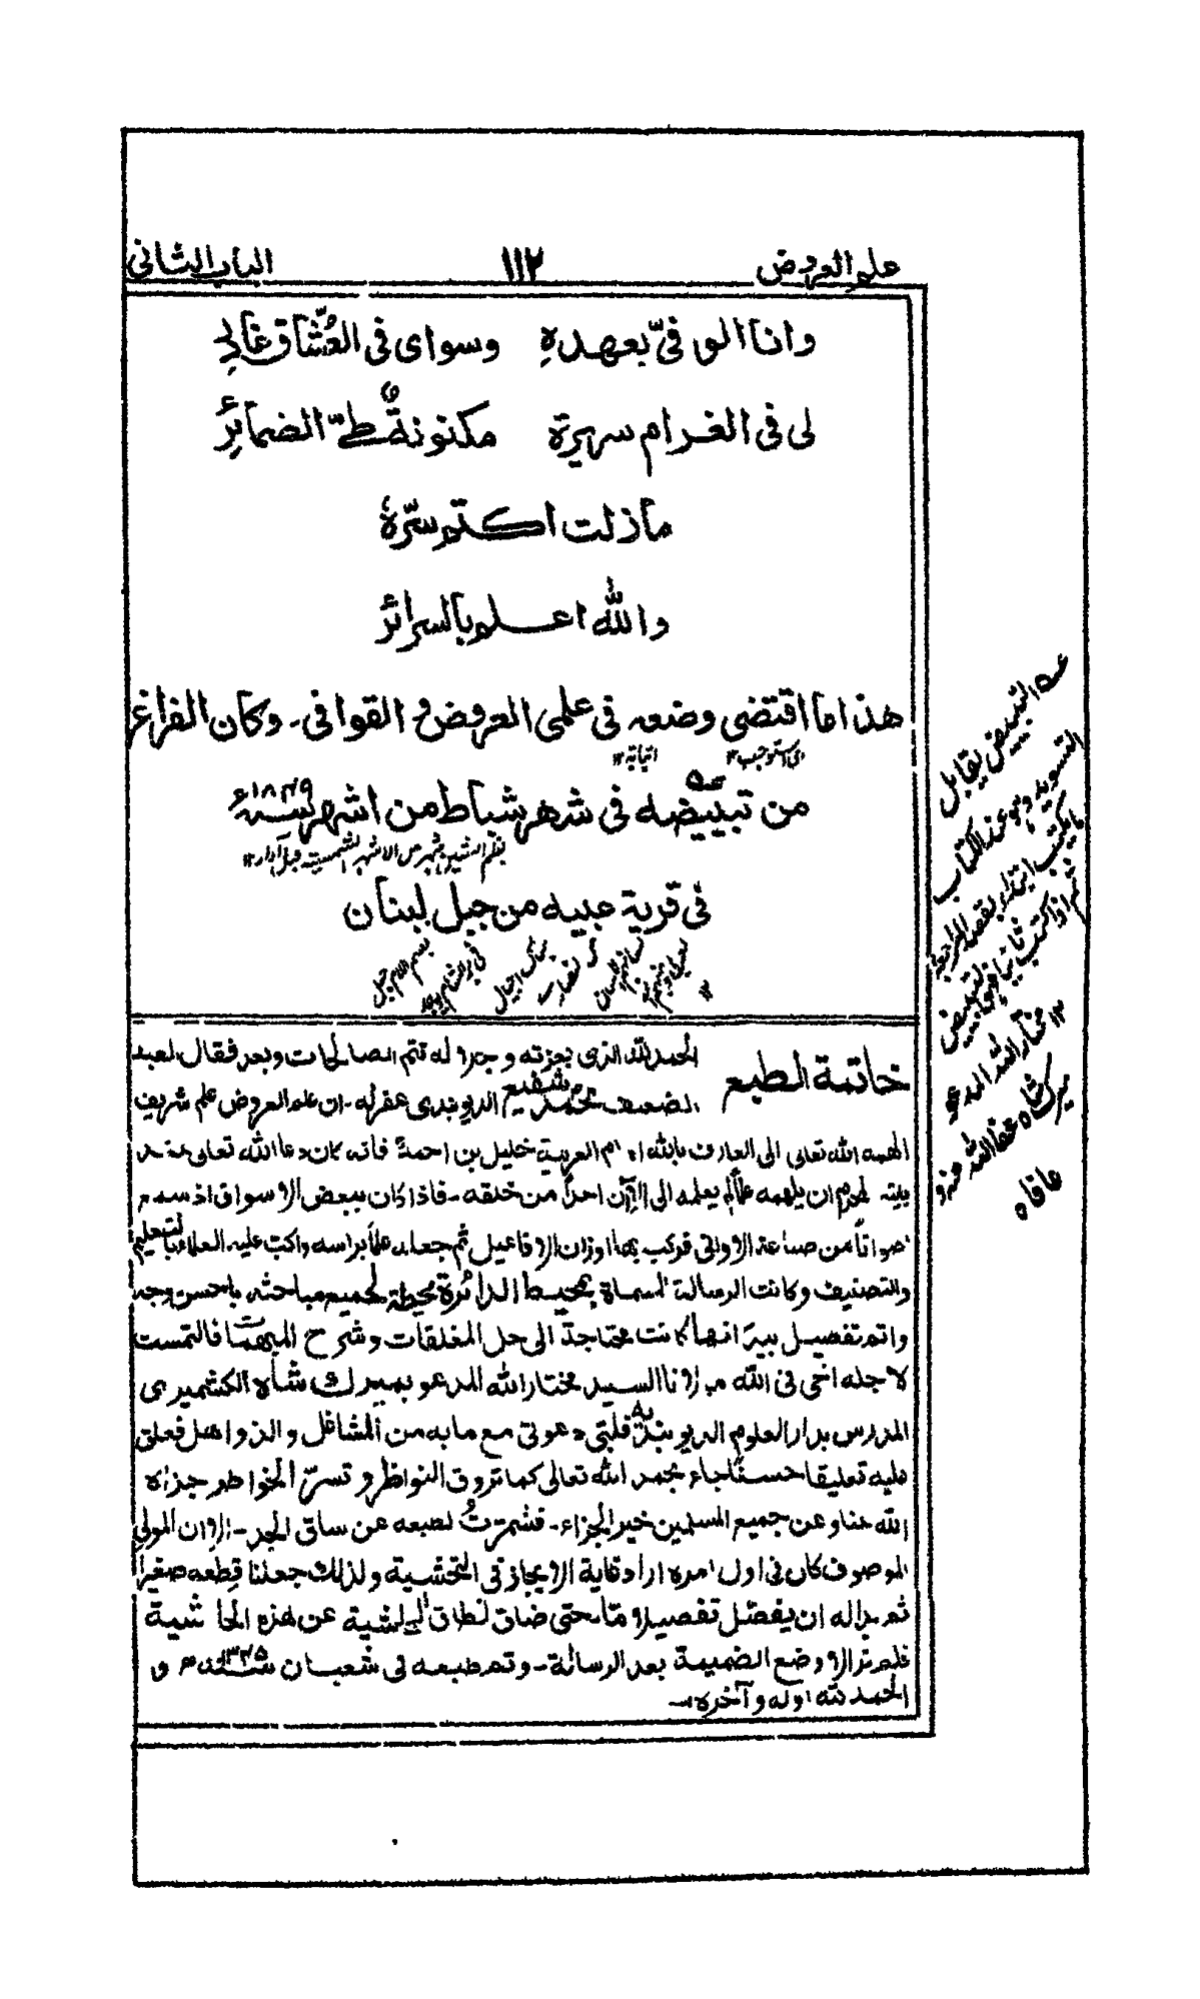 علم العروض ١١٢ الباب الثانى
وانا الوفىّ بعهدهِ وسواى فى العُشّاق غادِرْ
لى فى الغرام سريرة مكنونةٌ طىّ الضمائِرْ
مازلت اكتم سرّهٗ
والله اعلم بالسرائرْ
هذا ما اقتضى وضعه فى علمى العروض و القوافى۔ وكان الفراغ
من تبييضه فى شهر شباط من اشهر سنة ١٨٣٩ء
فى قرية عبيه من جبل لبنان
خاتمة الطبع
الحمد لله الذى بعزته وجلاله تتم الصالحات وبعد فقال العبد
الضعيف محمد شفيع الديوبندى غفرله۔ ان علم العروض علم شريف
الهمه الله تعالى الى العارف بالله امام العربية خليل بن احمدؒ فانه كان دعا الله تعالى عند
بيته المحرم ان يلهمه علماً لم يعلمه الى الآن احداً من خلقه۔ فاذا كان ببعض الاسواق اذ سمع
اصواتاً من صناعة الاوانى فركب بها اوزان الافاعيل ثم جعله علماً براسه واكب عليه العلماء بالتعليم
والتصنيف وكانت الرسالة المسماة بمحيط الدائرة محيطة لجميع مباحثه باحسن وجه
واتم تفصيل بيد انها كانت محتاجة الى حل المغلقات وشرح المبهمات فالتمست
لاجله اخى فى الله مولانا السيد مختار الله المدعو بميرك شاه الكشميرى
المدرس بدار العلوم الديوبندية فلبّى دعوتى مع ما به من المشاغل والذواهل فعلق
عليه تعليقا حسنًا جاء بحمد الله تعالى كما تروق النواظر و تسرّ الخواطر جزاه
الله عنا وعن جميع المسلمين خير الجزاء۔ فشمرتُ لطبعه عن ساق الجد۔ الا ان المولى
الموصوف كان فى اول امره اراد غاية الايجاز فى التحشية ولذلك جعلنا قطعه صغيراً
ثم بدا له ان يفصّل تفصيلا ما حتى ضاق نطاق الحاشية عن هذه الحاشية
فلم نر الا وضع الضميمة بعد الرسالة۔ وتم طبعه فى شعبان سنة ١٣٤٥ه و
الحمد لله اوله وآخره۔
عه التبييض يقابل
التسويد وهو عند الكتاب
ما يكتب ابتداء بقصد المراجعة
ثم اذا كتب ثانيا فهو التبييض
١٢ مختار الله المدعو
ميرك شاه عفا الله عنه و
عافاه